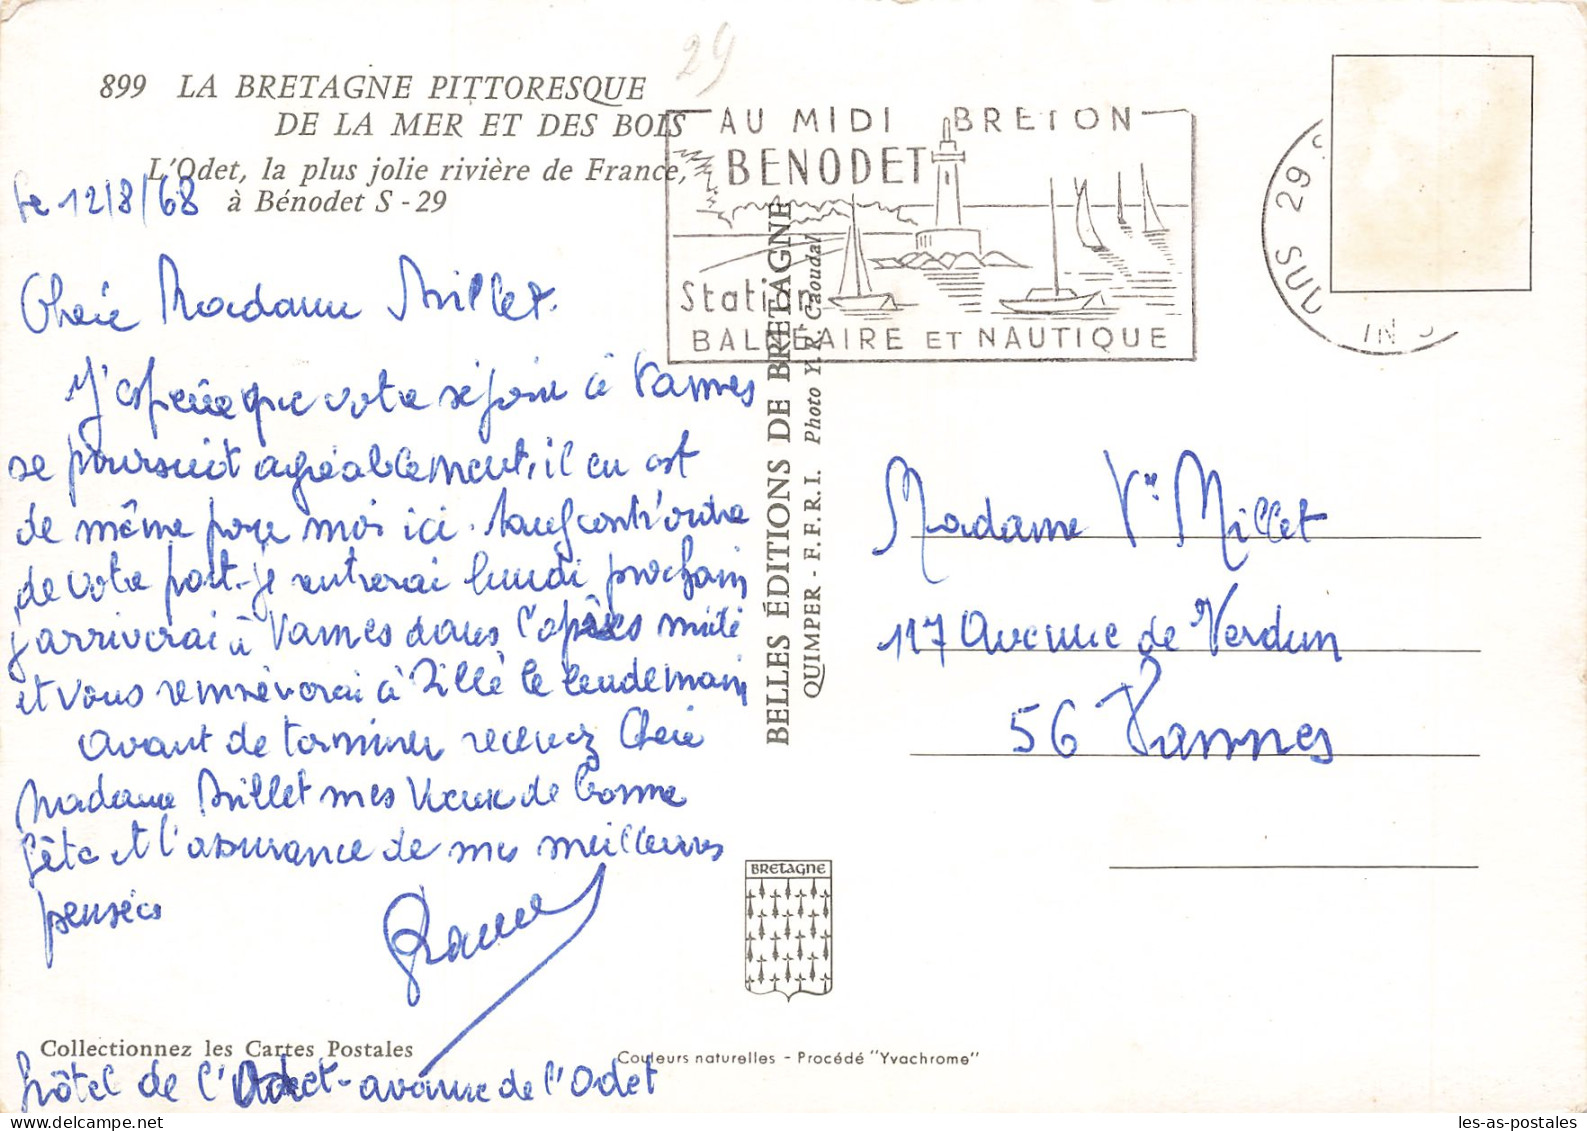 29
899 LA BRETAGNE PITTORESQUE
DE LA MER ET DES BOIS
L'Odet, la plus jolie rivière de France,
à Bénodet S - 29
Le 12/8/68
AU MIDI BRETON
BENODET
Station
BALNEAIRE ET NAUTIQUE
29 S
SUD
IN
Chère Madame Millet.
J'espère que votre séjour à Vannes
se poursuit agréablement, il en est
de même pour moi ici. Sauf contr'ordre
de votre part je rentrerai lundi prochain
j'arriverai à Vannes dans l'après midi
et vous remmènerai à Tillé le lendemain
Avant de terminer recevez Chère
Madame Millet mes Vœux de Bonne
fête et l'assurance de mes meilleures
pensées
hôtel de l'Odet - avenue de l'Odet
BELLES ÉDITIONS DE BRETAGNE
QUIMPER - F.F.R.I. Photo Y. R. Caoudal
Madame Vve Millet
117 Avenue de Verdun
56 Vannes
BRETAGNE
Collectionnez les Cartes Postales
Couleurs naturelles - Procédé "Yvachrome"
les-as-postales